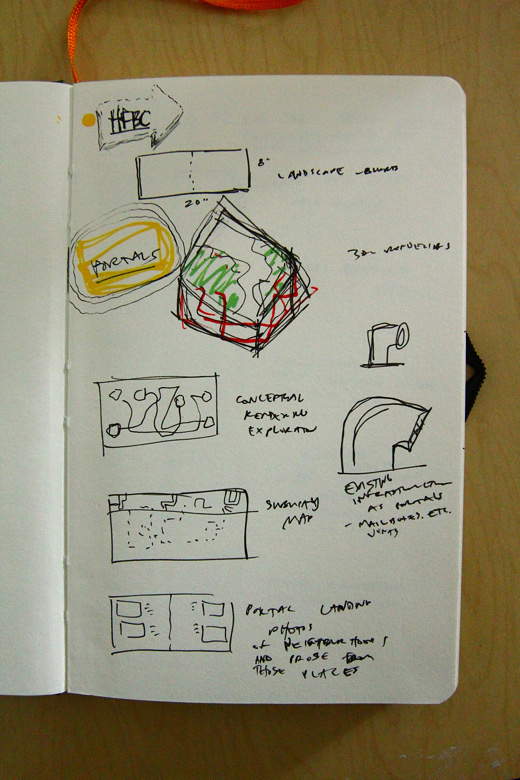 HFBC
8"
LANDSCAPE - BLURB
20"
PORTALS
3D RENDERINGS
CONCEPTUAL
RENDERING
EXPLORATION
EXISTING
INFRASTRUCTURE
AS PORTALS
- MAILBOXES, ETC.
VENTS
SUBWAY
MAP
PORTAL LANDING
PHOTOS
of NEIGHBORHOODS
AND PROSE from
THOSE PLACES